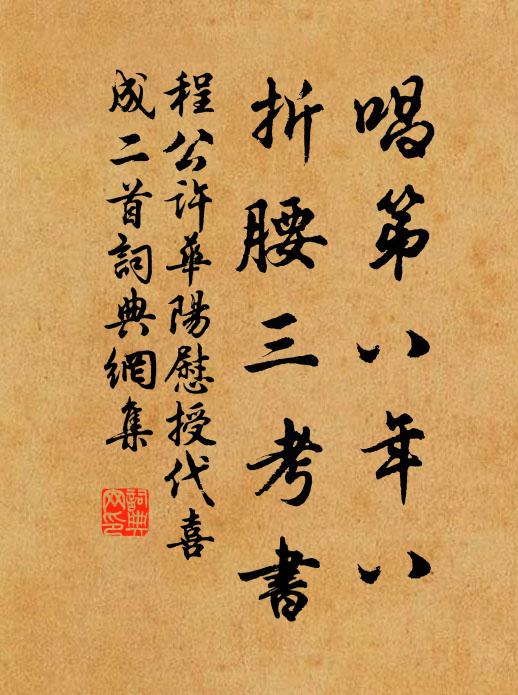 唱第八年八
折腰三考書
程公許華陽慰授代喜
成二首詞典網集
詞典
网印